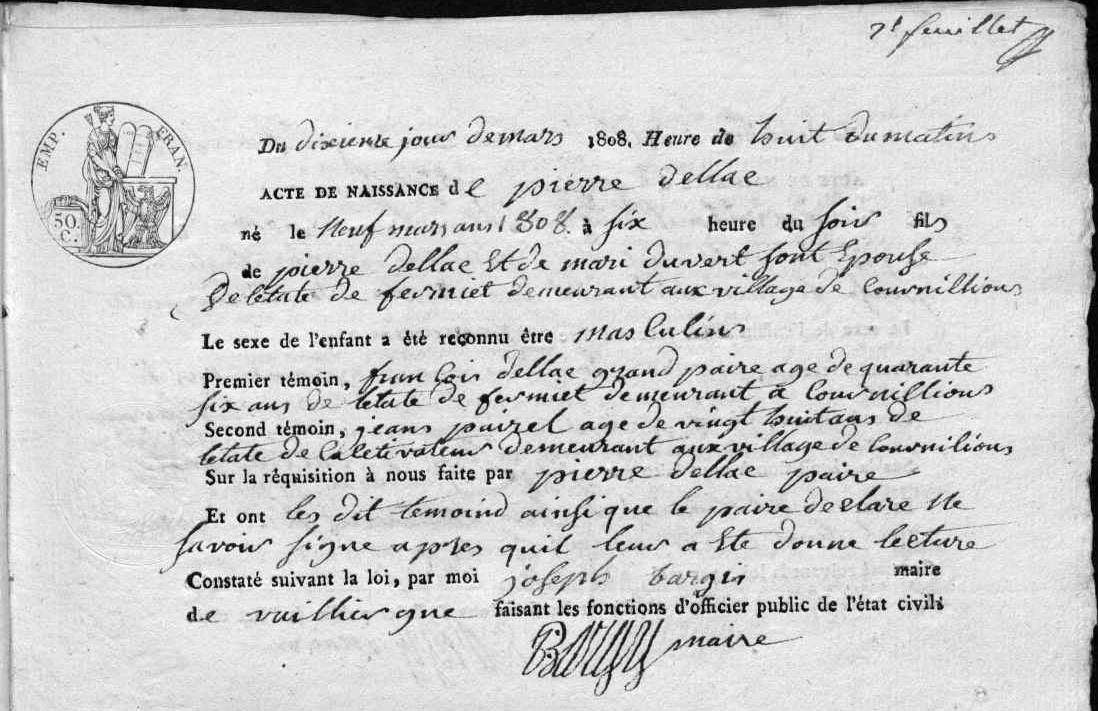 7e feuillet
EMP. FRAN.
50 C.
Du dixieme jour demars 1808. Heure de huit dumatins
ACTE DE NAISSANCE de pierre dellac
né le Neuf mars ans 1808. à six heure du soir fils
de pierre dellac Et de mari duvert sont Epouse
De letate de fermiet demeurant aux village de Cournillious
Le sexe de l'enfant a été reçonnu être masculins
Premier témoin, francois dellac grand paire age de quarante
six ans de letate de fermiet demeurant a Cournillious
Second témoin, jeans pairel age de vingt huit ans de
letate de Caletivateur demeurant aux village de Cournilious
Sur la réquisition à nous faite par pierre dellac paire
Et ont les dit temoind ainsi que le paire declare Ne
savoir signe apres quil leur a Ete donne lecture
Constaté suivant la loi, par moi joseph bargis maire
de vailliergue faisant les fonctions d'officier public de l'état civil:
maire